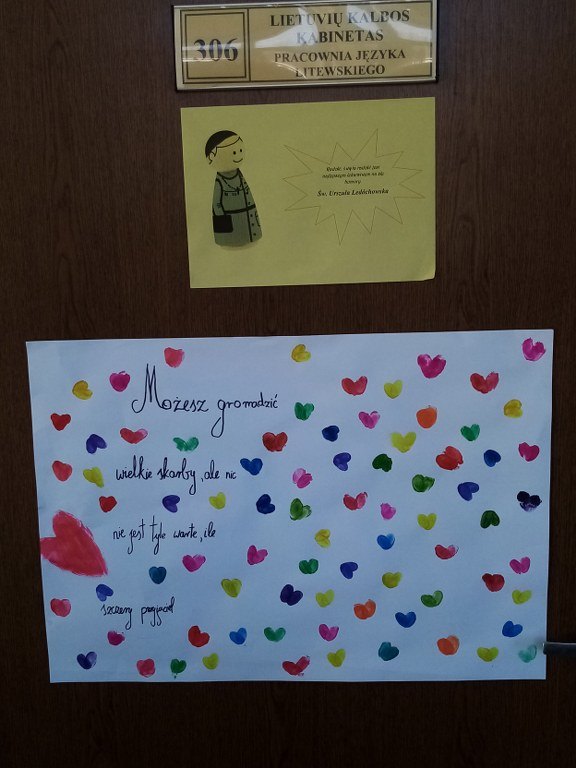 306
LIETUVIŲ KALBOS
KABINETAS
PRACOWNIA JĘZYKA
LITEWSKIEGO
Św. Urszula Ledóchowska
Możesz gromadzić
wielkie skarby, ale nic
nie jest tyle warte, ile
szczery przyjaciel